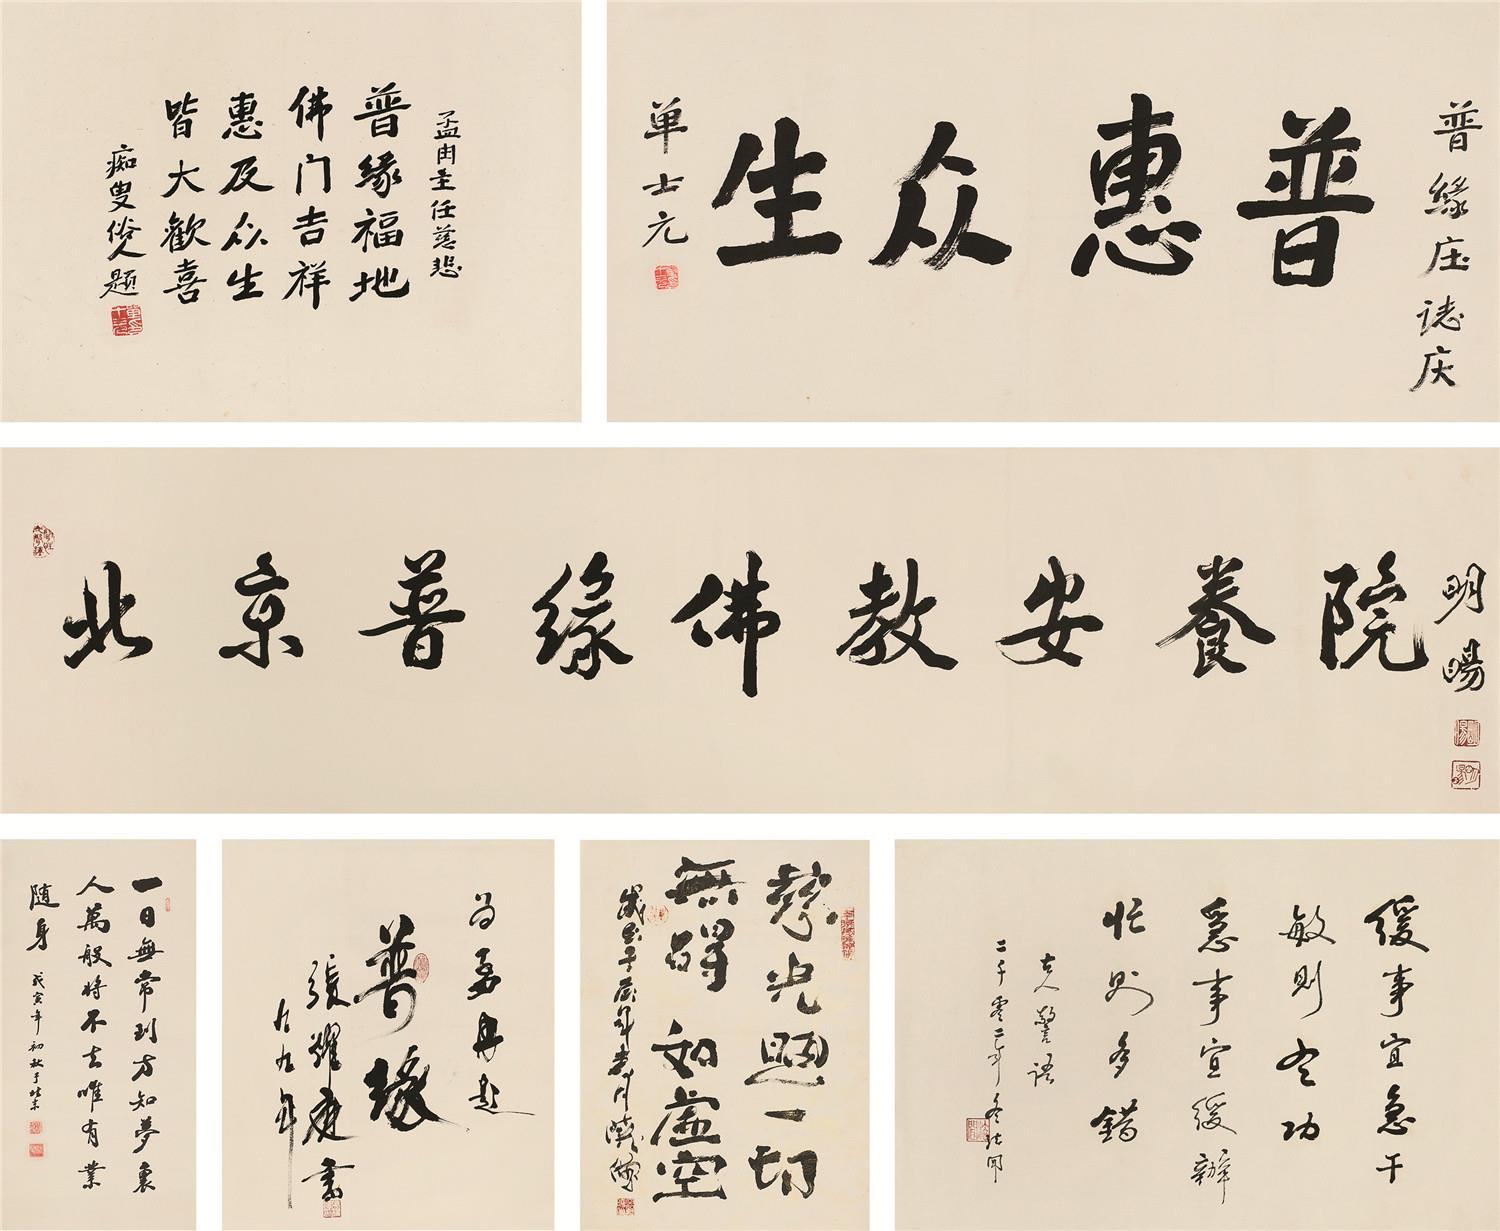 孟冉主任慈悲
普缘福地
佛门吉祥
惠及众生
皆大歡喜
痴叟俗人题
普缘庄誌庆
普惠众生
单士元
北京普缘佛教安養院
明暘
一日無常到方知夢裏
人萬般将不去唯有業
随身
戊寅年初秋于北京
为孟冉题
普缘
張耀庭書
九九年
慧光照一切
無碍如虚空
缓事宜急干
敏则有功
急事宜缓辦
忙则多錯
古人警语
二千零二年冬